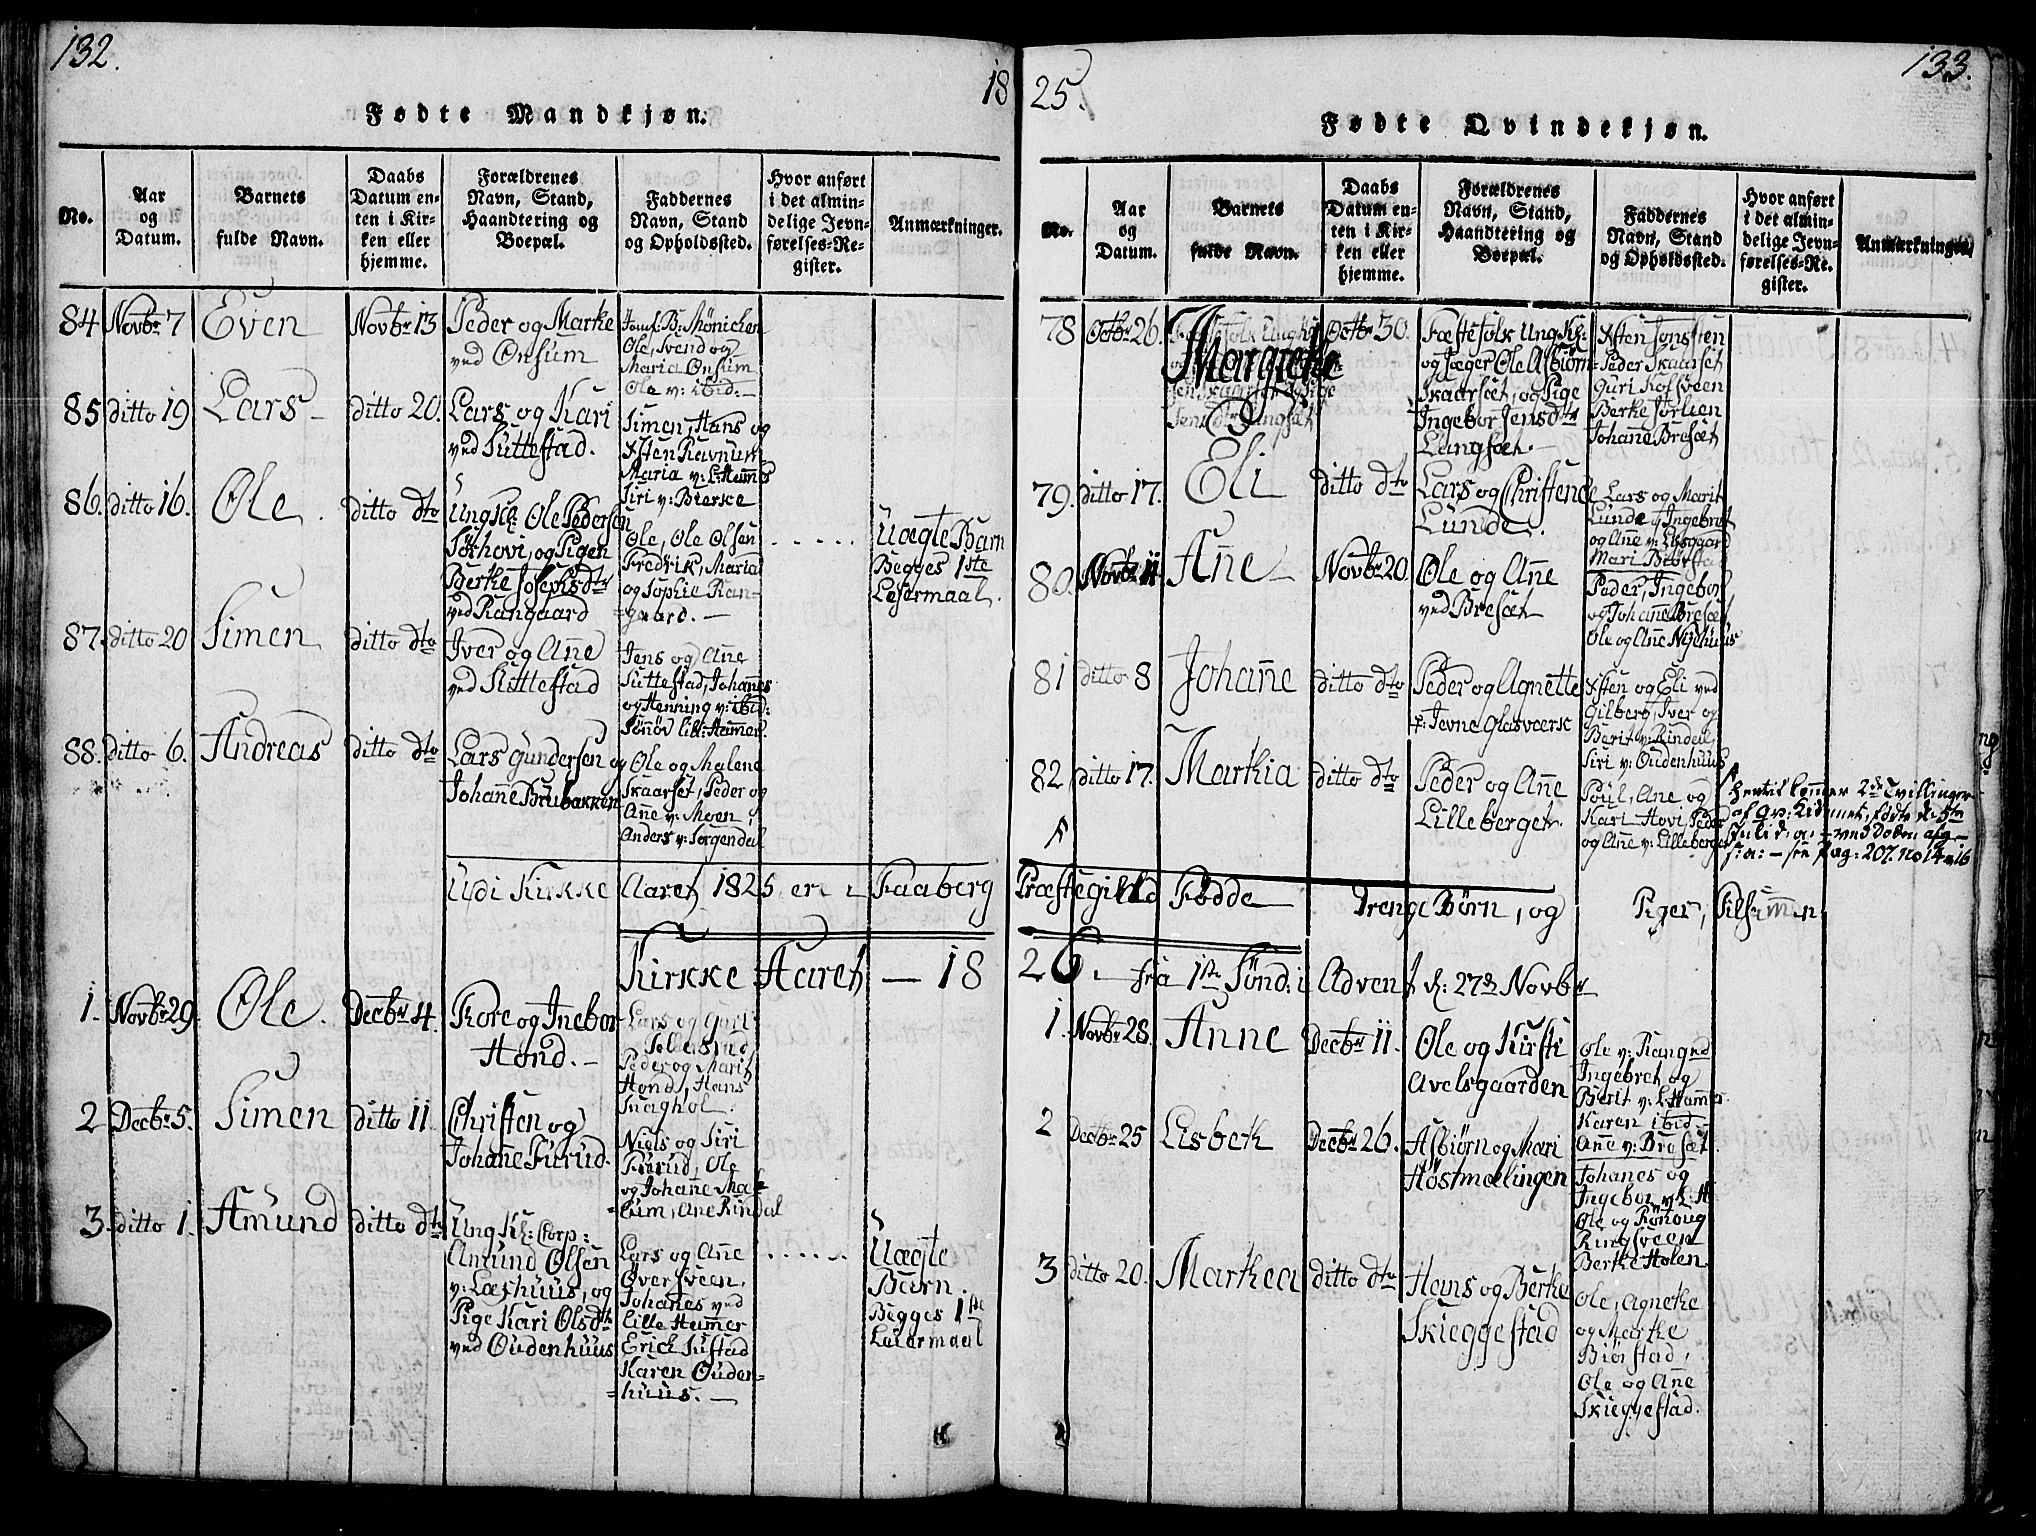 132.
18
Fødte Mandkjøn.
No.
Aar
og
Datum.
Barnets
fulde Navn.
Daabs
Datum en-
ten i Kir-
ken eller
hjemme.
Forældrenes
Navn, Stand,
Haandtering og
Boepæl.
Faddernes
Navn, Stand
og Opholdssted.
Hvor anført
i det almin-
delige Jevn-
førelses-Re-
gister.
Anmærkninger.
84 Novbr 7 Even Novbr 13
Peder og Marthe
ved Onsum
Jomf: B: Mønichen
Ole, Svend og
Maria Onsum
Ole v: ibid: —
85 ditto 19 Lars — ditto 20.
Lars og Kari
ved Suttestad.
Simen, Hans og
Østen Ravnum
Maria v: L: Hammer
Siri v: Bierke
86. ditto 16. Ole. ditto dto
Ungke: Ole Pedersen
hovi, og Pigen
Berthe Josephsdtr
ved Rangaard
Ole, Ole Olsen
Fredrik, Maria
og Sophie Ran-
gaard. —
Uægte Barn
Begges 1ste
Leiermaal.
87. ditto 20 Simen ditto dto
Iver og Ane
ved Suttestad
Jens og Ane
Suttestad, Johannes
og Henning v: ibid:
Sønøv lill: Hammer.
88. ditto 6. Andreas ditto dto
Lars Gundersen og
Johane Brubakken
Ole og Malene
Skaarset, Peder og
Ane v: Moen,
Anders v: Jorgendal
Udi Kirkke Aaret 1825 ere i Faaberg
Kirkke Aaret — 18
1. Novbr 29. Ole. Decbr 4.
Tore og Inebor
Hond. —
Lars og Guri
Tollersrud
Peder og Marit
Hond, Hans
2 Decbr 5. Simen ditto 11
Christen og
Johane Furud.
Niels og Siri
Furud, Ole
og Johane Mæ-
lum, Ane Rindal
3. ditto 1. Amund ditto dto
Ung K: Corp:
Amund Olsen
v: Læshuus, og
Pige Kari Olsdtr
ved Oudenhuus
Lars og Ane
Øversveen,
Johanes ved
Lille Hammer
Erick Sustad
Karen Ouden-
huus. —
Uægte
Barn.
Begges 1ste
Leiermaal
25.
133.
Fødte Qvindekjøn.
No.
Aar
og
Datum.
Barnets
fulde Navn.
Daabs
Datum en-
ten i Kir-
ken eller
hjemme.
Forældrenes
Navn, Stand,
Haandtering og
Boepæl.
Faddernes
Navn, Stand
og Opholdssted.
Hvor anført
i det almin-
delige Jevn-
førelses-Re-
gister.
Anmærkninger.
78 Octbr 26. Margrethe Octbr 30.
Fæstefolk Ung K:
og Jæger Ole Asbiørn-
Skaarset, og Pige
Ingebor Jensdtr
Langsæt. —
Østen Jonstien
Peder Skaarset
Guri Kofsveen
Berthe Jørlien
Johane Bresæt
79. ditto 17. Eli ditto dto
Lars og Christence
Lunde.
Lars og Marit
Lunde, Ingebret
og Ane v: Lisgaard
Mari Biørstad
80. Novbr 11 Ane — Novbr 20
Ole og Ane
ved Bresæt
Peder, Ingebor
og Johane Bresæt,
Ole og Ane Nyehuus
81 ditto 8 Johane ditto dto
Peder og Agnette
p: Jevne Glasværk
Østen og Eli ved
Gilberg, Iver og
Berit v: Rindal
Siri v: Oudenhuus
82 ditto 17. Marthia ditto dto
Peder og Ane
Lilleberget.
Poul, Ane og
Kari Hovi, Peder
og Ane v: Lilleberget
Hertil kommer 2de Tvillinger
Juli d: a: — ved Døden afg —
s: a: — see Pag: 207. no 14 & 16
Præstegield Fødde Drenge Børn, og Piger, Tilsammen
26. fra 1ste Sønd: i Advent d: 27de Novbr
1. Novbr 28. Anne Decbr 11.
Ole og Kirsti
Avelsgaarden
Ole v: Rangrud
Ingebret og
Berit v: L: Hammer
Karen ibid —
Ane v: Bresæt.
2 Decbr 25 Lisbeth Decbr 26.
Asbiørn og Mari
Høstmælingen
Johanes og
Ingebor v: L: H
Ole og Rønoug
Ringsveen
Berthe Holen
3 ditto 20. Marthea ditto dto
Hans og Berthe
Skieggestad
Ole, Agnethe
og Marthe
Biørstad,
Ole og Ane
Skieggestad.